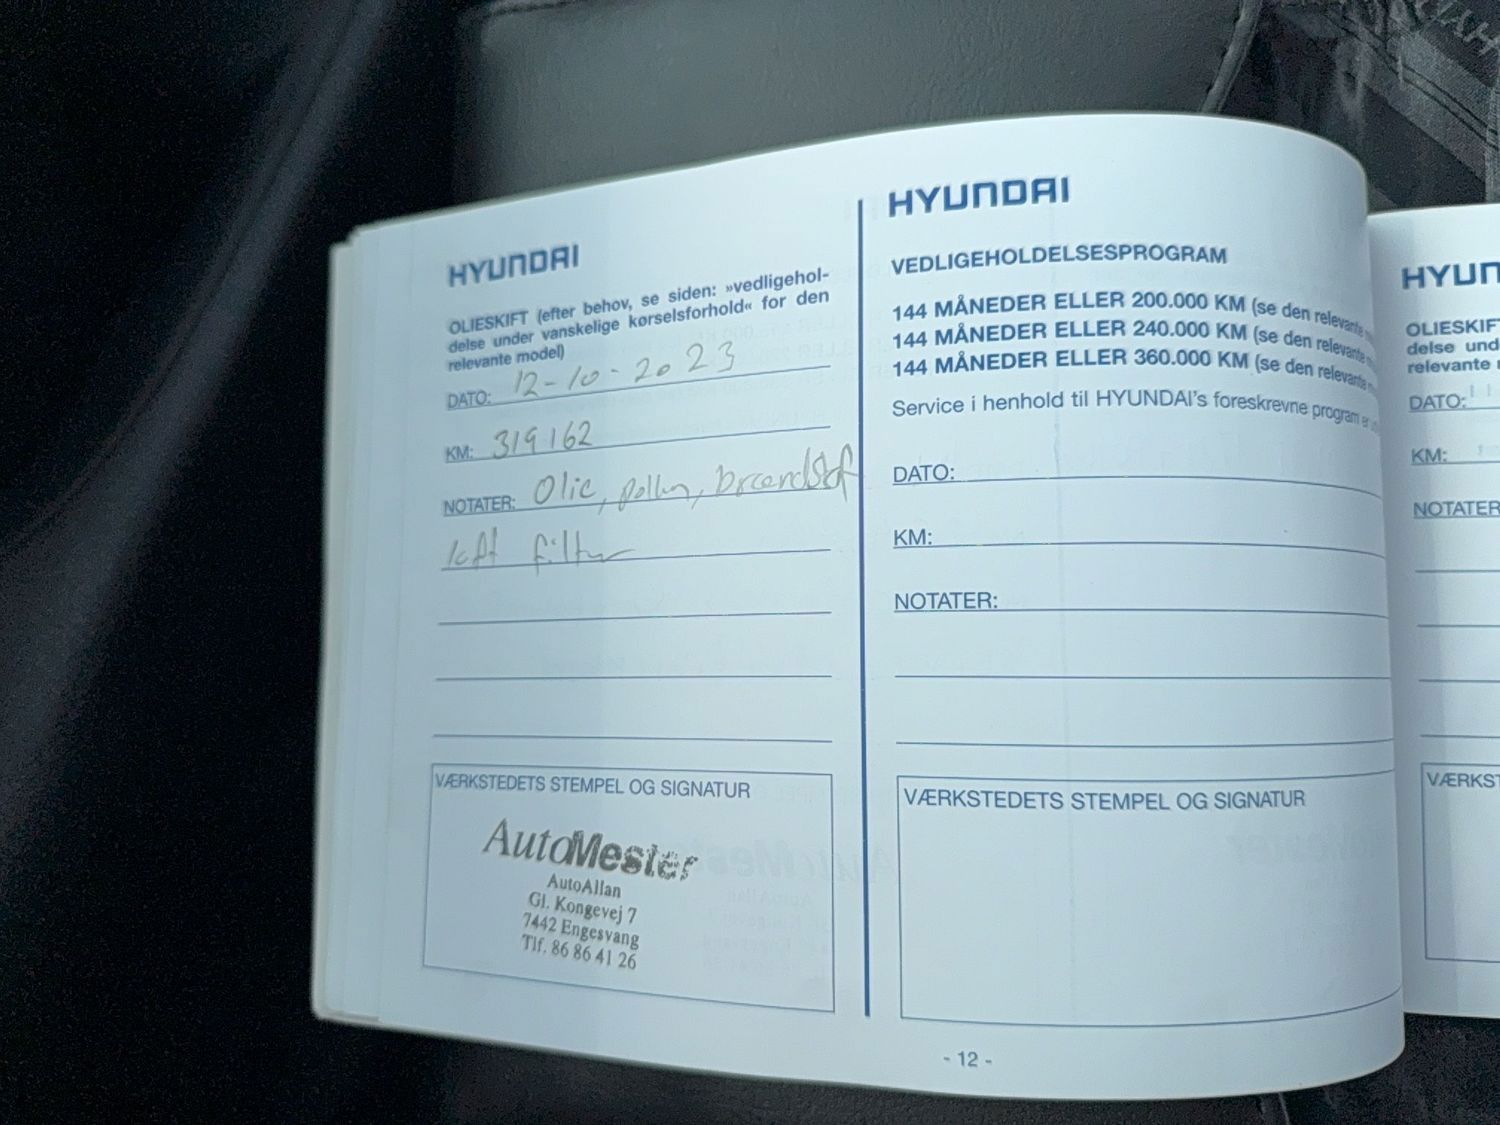 HYUNDAI
OLIESKIFT (efter behov, se siden: »vedligehol-
delse under vanskelige kørselsforhold« for den
relevante model)
DATO: 12-10-2023
KM: 319162
NOTATER: Olie, pollen, brændstof
luft filter
VÆRKSTEDETS STEMPEL OG SIGNATUR
AutoMester
AutoAllan
Gl. Kongevej 7
7442 Engesvang
Tlf. 86 86 41 26
HYUNDAI
VEDLIGEHOLDELSESPROGRAM
144 MÅNEDER ELLER 200.000 KM (se den relevante
144 MÅNEDER ELLER 240.000 KM (se den relevante
144 MÅNEDER ELLER 360.000 KM (se den relevante
Service i henhold til HYUNDAI's foreskrevne program er
DATO:
KM:
NOTATER:
VÆRKSTEDETS STEMPEL OG SIGNATUR
- 12 -
HYUN
OLIESKIFT
delse und
relevante
DATO:
KM:
NOTATER
VÆRKST